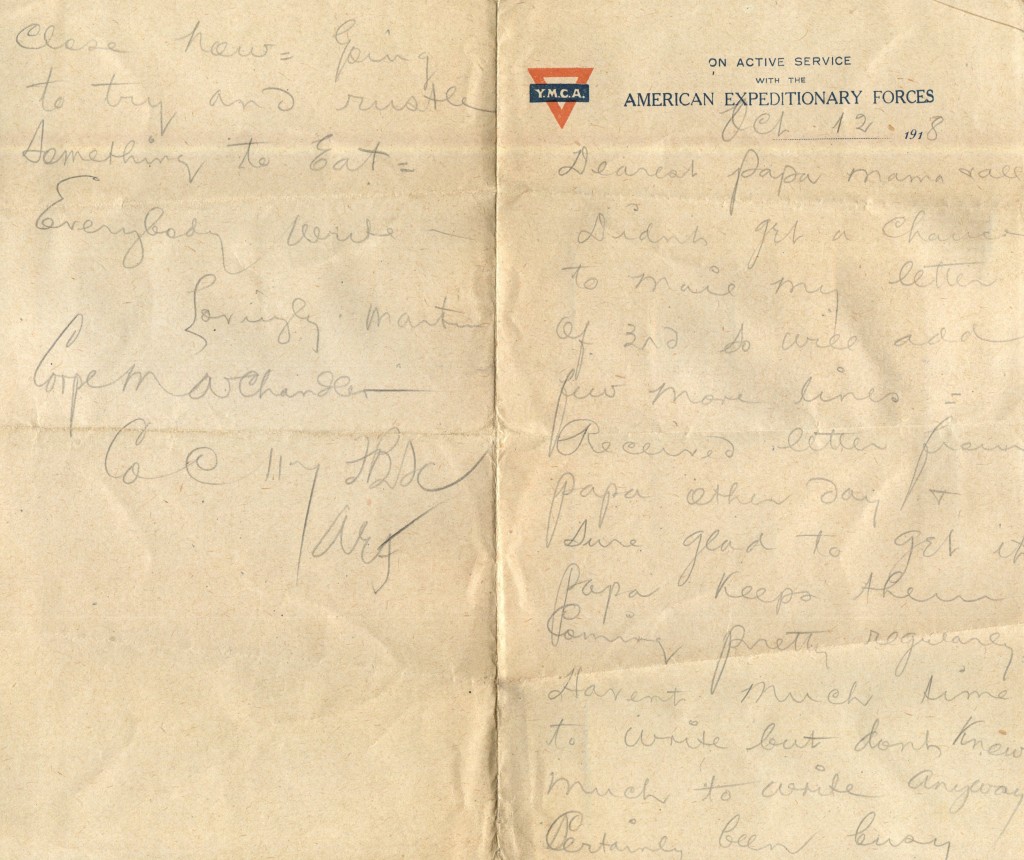 Close now = Going
to try and rustle
Something to Eat =
Everybody write —
Lovingly Martin
Corpl M W Chandler
Co C 117 FBSc
AEF
ON ACTIVE SERVICE
WITH THE
AMERICAN EXPEDITIONARY FORCES
Y.M.C.A.
Oct 12 1918
Dearest Papa Mama & all
Didnt get a Chance
to mail my letter
of 3rd so will add
few more lines =
Received letter from
Papa other day &
Sure glad to get it
Papa Keeps them
Coming pretty regularly
Havent much time
to write but dont Know
much to write anyway
Certainly been busy